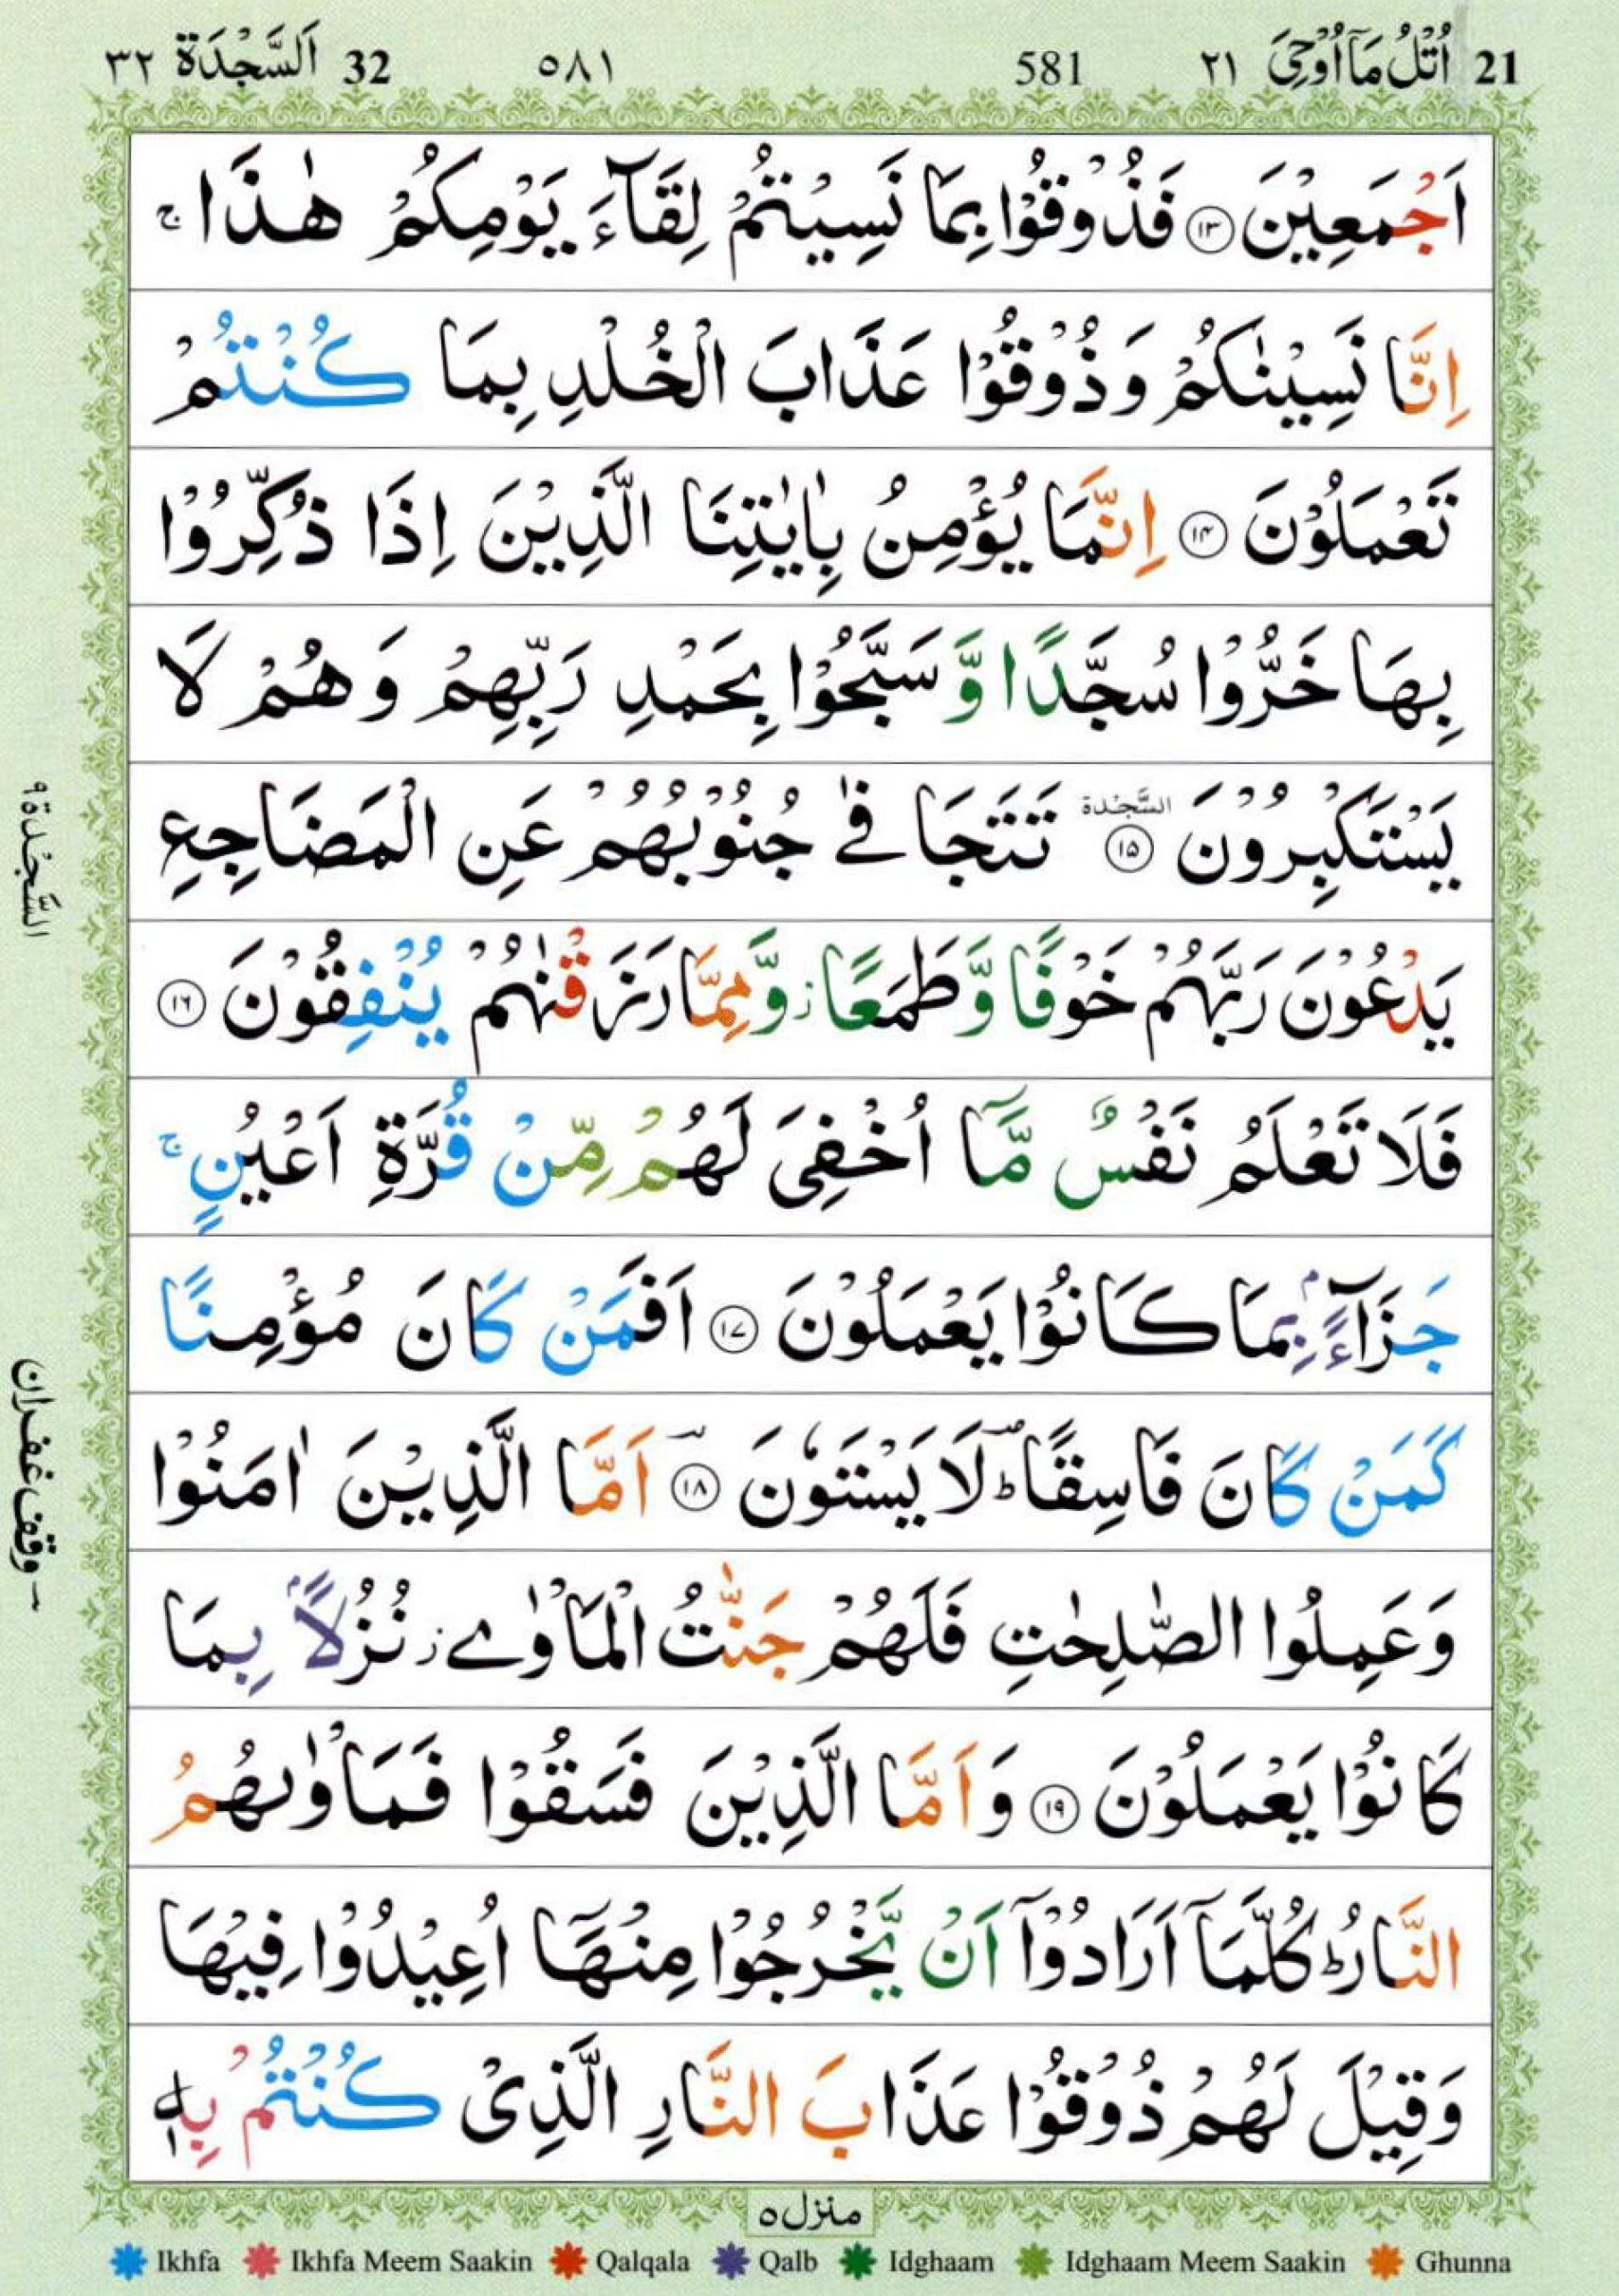 21 اُتْلُ مَآ اُوْحِیَ ٢١ 581 ٥٨١ 32 اَلسَّجْدَة ٣٢
اَجْمَعِیْنَ ١٣ فَذُوْقُوْا بِمَا نَسِیْتُمْ لِقَآءَ یَوْمِكُمْ هٰذَا ۚ
اِنَّا نَسِیْنٰكُمْ وَذُوْقُوْا عَذَابَ الْخُلْدِ بِمَا كُنْتُمْ
تَعْمَلُوْنَ ١٤ اِنَّمَا یُؤْمِنُ بِاٰیٰتِنَا الَّذِیْنَ اِذَا ذُكِّرُوْا
بِهَا خَرُّوْا سُجَّدًا وَّ سَبَّحُوْا بِحَمْدِ رَبِّهِمْ وَ هُمْ لَا
یَسْتَكْبِرُوْنَ السَّجْدَة ١٥ تَتَجَا فٰی جُنُوْبُهُمْ عَنِ الْمَضَاجِعِ
یَدْعُوْنَ رَبَّهُمْ خَوْفًا وَّطَمَعًا ز وَّمِمَّا رَزَقْنٰهُمْ یُنْفِقُوْنَ ١٦
فَلَا تَعْلَمُ نَفْسٌ مَّاۤ اُخْفِیَ لَهُمْ مِّنْ قُرَّةِ اَعْیُنٍ ۚ
جَزَآءًۢ بِمَا كَانُوْا یَعْمَلُوْنَ ١٧ اَفَمَنْ كَانَ مُؤْمِنًا
كَمَنْ كَانَ فَاسِقًا ؕؔ لَا یَسْتَوٗنَ ١٨ اَمَّا الَّذِیْنَ اٰمَنُوْا
وَعَمِلُوا الصّٰلِحٰتِ فَلَهُمْ جَنّٰتُ الْمَاْوٰی ز نُزُلًۢا بِمَا
كَانُوْا یَعْمَلُوْنَ ١٩ وَ اَمَّا الَّذِیْنَ فَسَقُوْا فَمَاْوٰىهُمُ
النَّارُ ؕ كُلَّمَاۤ اَرَادُوْۤا اَنْ یَّخْرُجُوْا مِنْهَاۤ اُعِیْدُوْا فِیْهَا
وَقِیْلَ لَهُمْ ذُوْقُوْا عَذَابَ النَّارِ الَّذِیْ كُنْتُمْ بِهٖ
السَّجْدَة ٩
وقف غفران
منزل ٥
Ikhfa Ikhfa Meem Saakin Qalqala Qalb Idghaam Idghaam Meem Saakin Ghunna